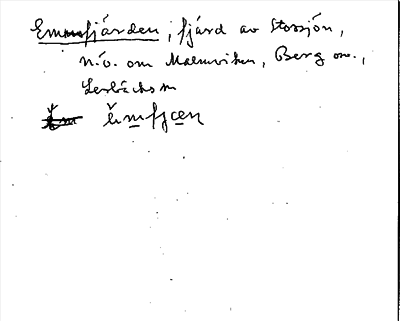 Emmfjärden, fjärd av Storsjön,
n.ö. om Malmviken, Berg om.,
Lerbäcks sn
emfjæn